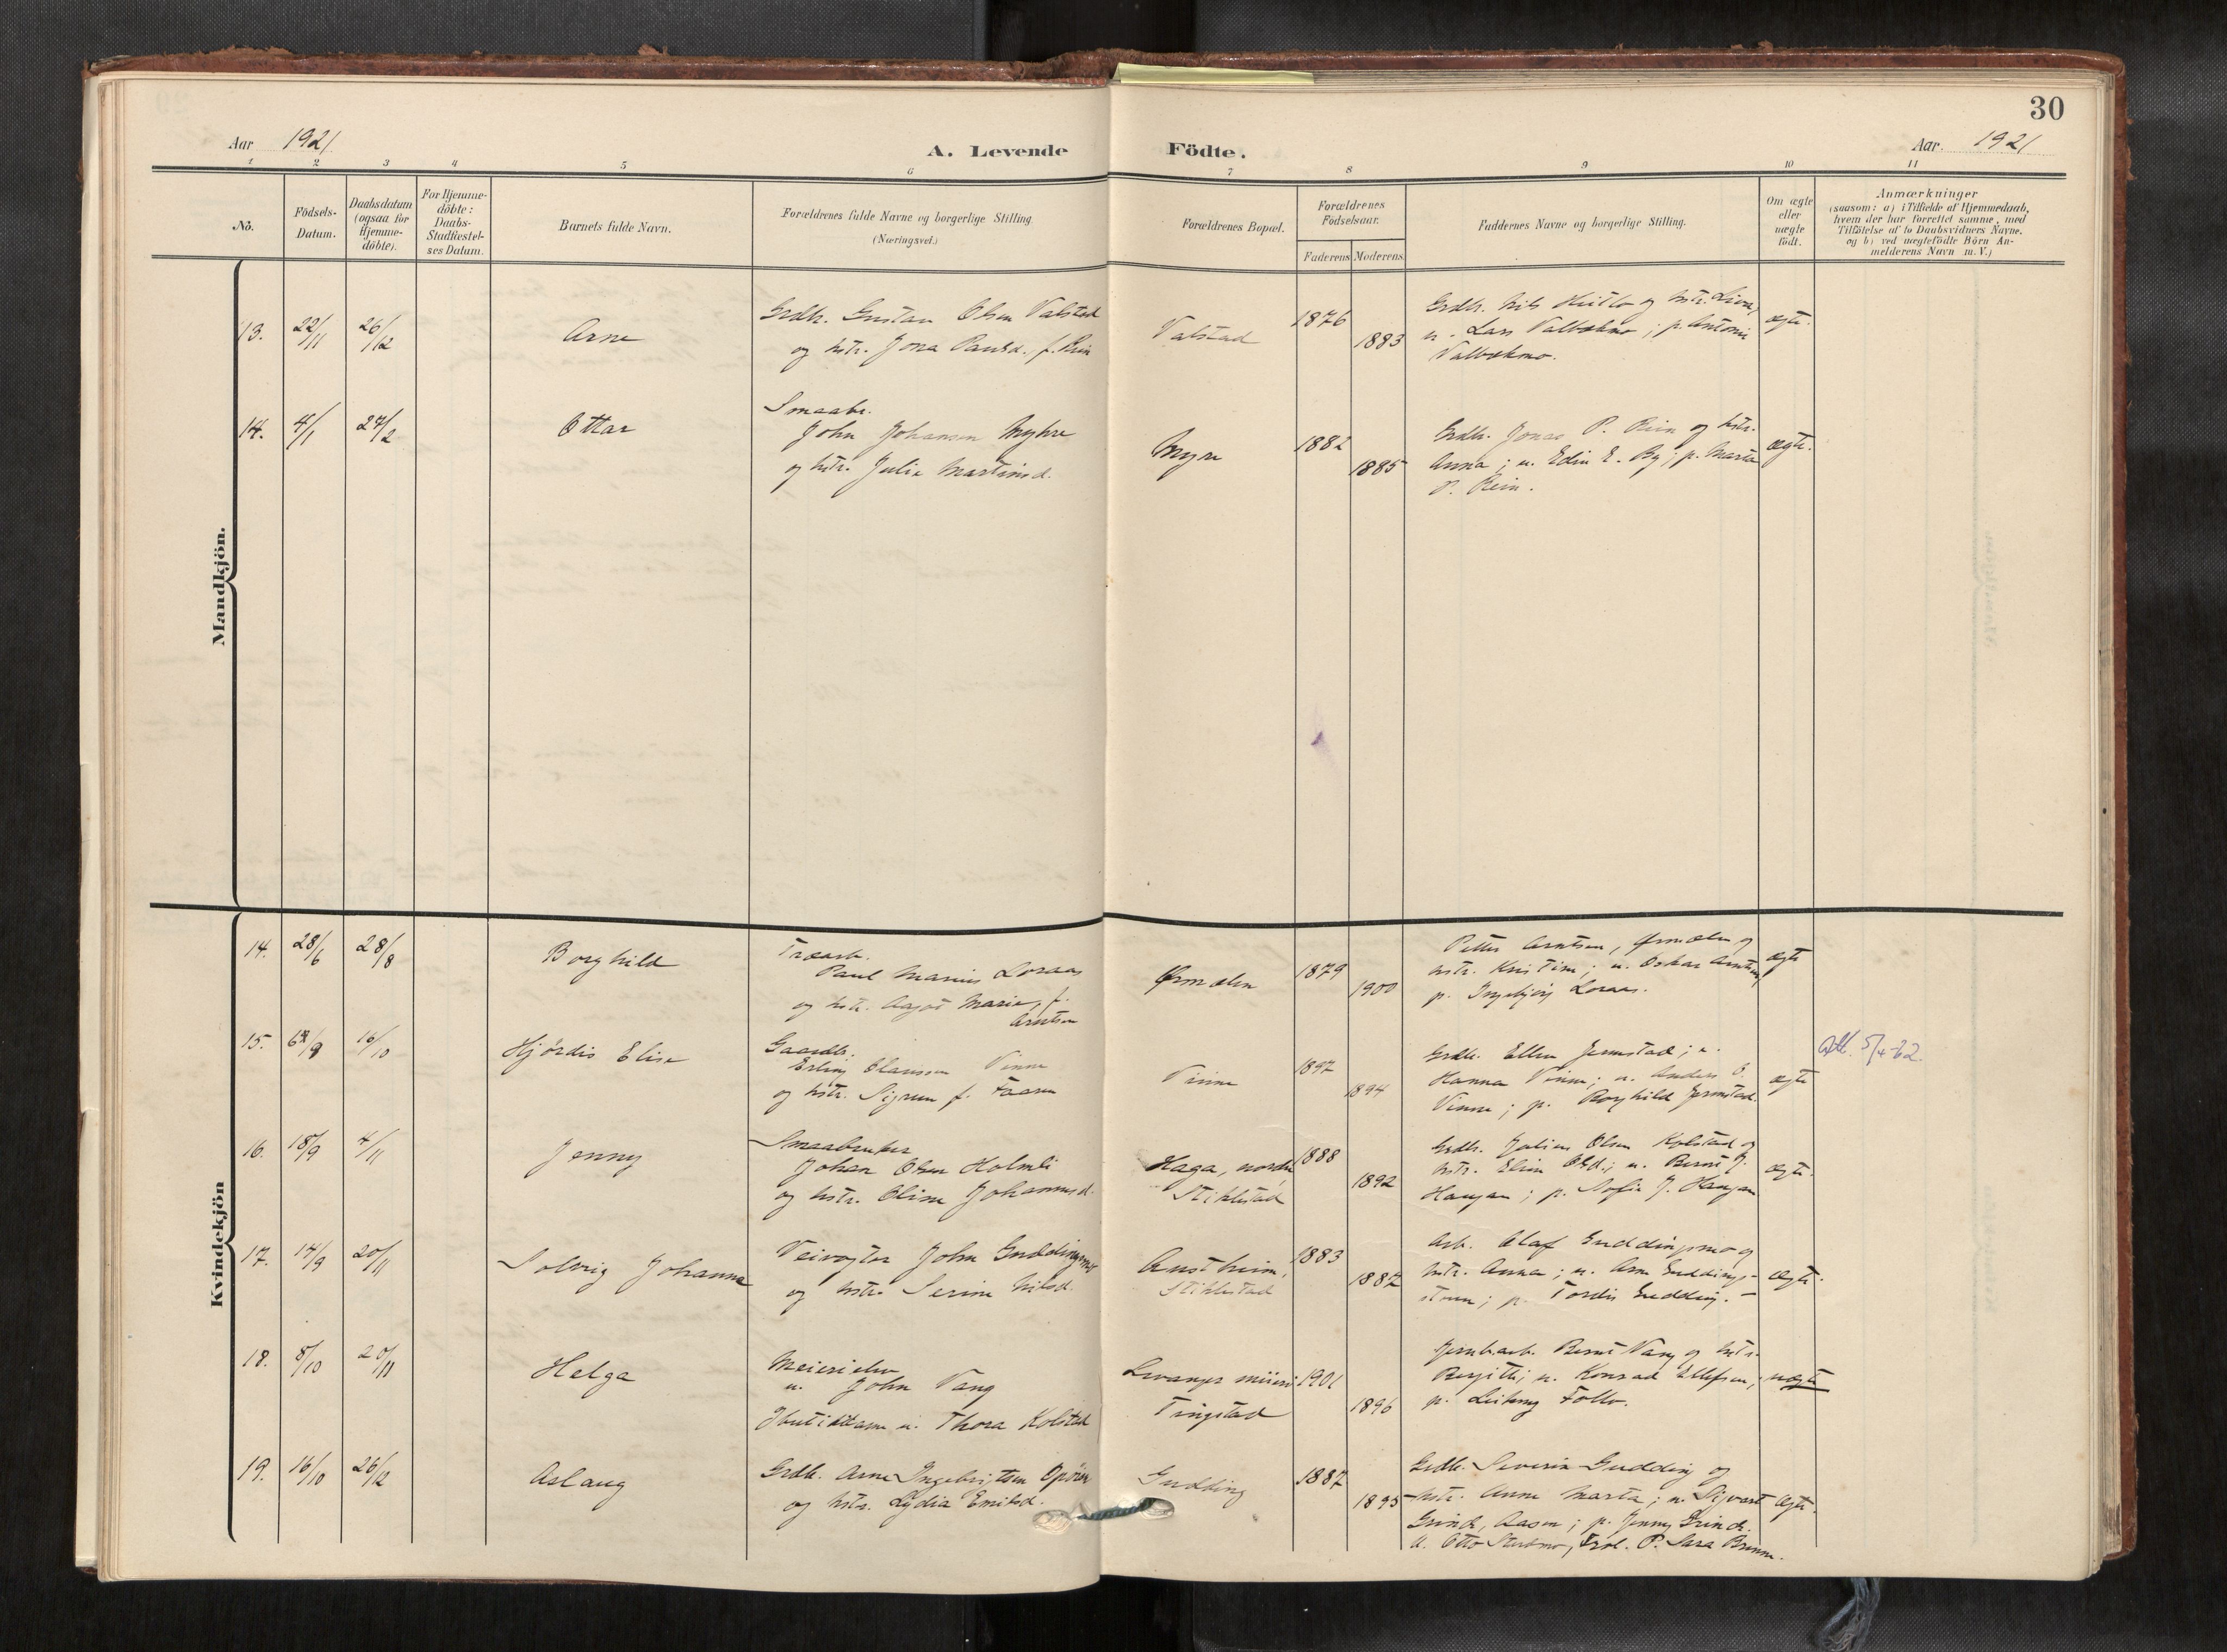 30
Aar 1921
A. Levende Födte.
Aar. 1921
1 2 3 4 5 6 7 8 9 10 11
No.
Födsels-
Datum.
Daabsdatum
(ogsaa for
Hjemme-
döbte).
For Hjemme-
döbte:
Daabs-
Stadfæstel-
ses Datum.
Barnets fulde Navn.
Forældrenes fulde Navne og borgerlige Stilling.
(Næringsvei.)
Forældrenes Bopæl.
Forældrenes
Födselsaar.
Faderens Moderens
Faddernes Navne og borgerlige Stilling.
Om ægte
eller
uægte
födt.
Anmærkninger
(saasom: a) i Tilfælde af Hjemmedaab,
hvem der har forrettet samme, med
Tilföielse af to Daabsvidners Navne,
og b) ved uægtefödte Börn An-
melderens Navn m.V.)
Mandkjön.
13. 22/11 26/12
Arne
Grdbr. Gustav Olsen Valstad
og hstr. Jona Paulsd. f. Rein
Valstad
1876
1883
Grdbr. Nils og hstr.
u. Lars Valbekmo; p. Antonie
Valbekmo.
ægte.
14. 4/1 27/2
Ottar
Smaabr.
John Johansen Myhre
og hstr. Julie Martinsd.
Myre
1882
1885
Grdbr. Jonas P. Rein og hstr.
Anna; u. Edin E. By; p. Marta
P. Rein.
ægte.
Kvindekjön
14. 28/6 28/8
Borghild
Træarb.
Paul Marius Loraas
og hstr. Aagot Marie, f.
Arntsen
Ørmælen
1879
1900
Petter Arntsen, Ørmælen og
hstr. Kristine; u. Oskar Arntsen,
p. Ingebjörg Loraas.
ægte
15. 9 16/10
Hjørdis Elise
Gaardbr.
Erling Olaussen Vinne
og hstr. Sigrun f. Faaren
Vinne
1897
1894
Grdbr. Ellen Jermstad; u.
Hanna Vinne; u. Anders O.
Vinne; p. Borghild Jermstad.
ægte
Att. 5/4-62.
16. 18/9 4/11
Jenny
Smaabruker
Johan Olsen Holmli
og hstr. Oline Johannesd.
Haga, nordre
Stiklestad
1888
1892
Grdbr. Julius Olsen Kolstad og
hstr. Elise Olsd.; u. Bernt J.
Haugan; p. Sofie J. Haugan
ægte.
17. 14/9 20/11
Solveig Johanna
Veivogter John Guddingsmo
og hstr. Serine Nilsd.
Austheim,
Stiklestad
1883
1887
Arb. Olaf Guddingsmo og
hstr. Anna; u. Arne Guddings-
; p. Tordis Gudding.
ægte.
18. 8/10 20/11
Helga
Meierielev
u. John Vang
u. Thora Kolstad
Levanger meieri
Tingstad
1901
1896
Jernbarb. Bernt Vang og hstr.
Bergitte; u. Konrad Ellefsen,
p. Follo.
uægte
19. 16/10 26/12
Aslaug
Grdbr. Arne Ingebrigtsen
og hstr. Lydia Emilsd.
Gudding
1887
1895
Grdbr. Severin Gudding og
hstr. Anne Marta; u. Sigvart
Grinde, Aasen; p. Jenny Grinde.
U. Otto P. Sara
ægte.